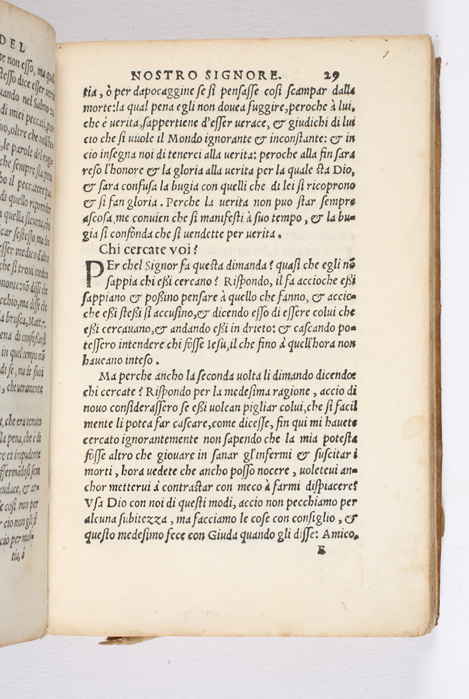 DEL
NOSTRO SIGNORE. 29
tia, ò per dapocaggine se si pensasse così scampar dalla
morte: la qual pena egli non douea fuggire, peroche à lui,
che è verita, sappertiene d'esser verace, & giudichi di lui
cio che si vuole il Mondo ignorante & inconstante: & in
cio insegna noi di tenerci alla verita: peroche alla fin sara
reso l'honore & la gloria alla verita per la quale sta Dio,
& sara confusa la bugia con quelli che di lei si ricoprono
& si fan gloria. Perche la verita non puo star sempre
ascosa, me conuien che si manifesti à suo tempo, & la bu-
gia si confonda che si vendette per verita.
Chi cercate voi?
PEr chel Signor fa questa dimanda? quasi che egli nõ
sappia chi eßi cercano? Rispondo, il fa accioche eßi
sappiano & poßino pensare à quello che fanno, & accio-
che eßi steßi si accusino, & dicendo esso di essere colui che
eßi cercauano, & andando eßi in drieto: & cascando po-
tessero intendere chi fosse Iesu, il che fino à quell'hora non
haueano inteso.
Ma perche ancho la seconda volta li dimando dicendo:
chi cercate? Rispondo per la medesima ragione, accio di
nouo considerassero se eßi volean pigliar colui, che si facil
mente li potea far cascare, come dicesse, fin qui mi hauete
cercato ignorantemente non sapendo che la mia potesta
fosse altro che giouare in sanar gl'infermi & suscitar i
morti, hora vedete che ancho posso nocere, voletèui an-
chor metterui à contrastar con meco à farmi dispiacere?
Vsa Dio con noi di questi modi, accio non pecchiamo per
alcuna subitezza, ma facciamo le cose con consiglio, &
questo medesimo fece con Giuda quando gli disse: Amico.
E